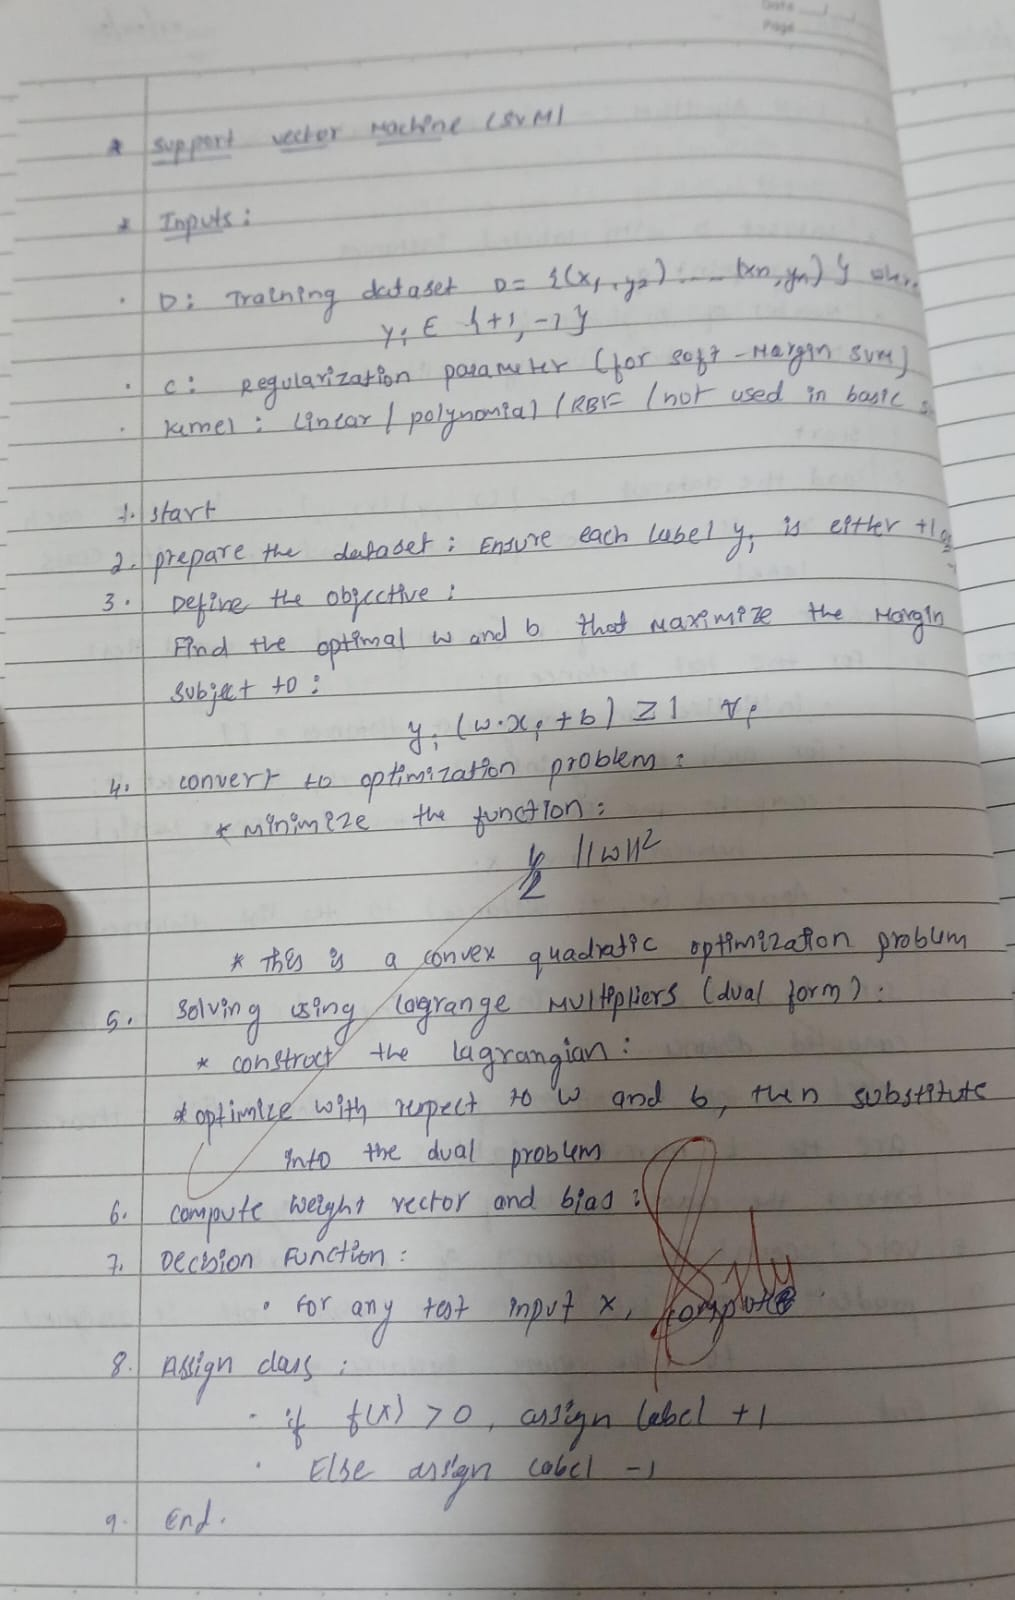 Date
Page
* Support vector Machine (SVM)
* Inputs :
• D: Training dataset D = {(x1, y2) .... (xn, yn)} where
yi ∈ {+1, -1}
• C: Regularization parameter (for soft-Margin SVM)
• kernel : Linear / polynomial / RBF (not used in basic
1. Start
2. prepare the dataset : Ensure each label yi is either +1 or
3. Define the objective :
Find the optimal w and b that maximize the Margin
Subject to :
yi (w·xi + b) ≥ 1 ∀i
4. convert to optimization problem :
* Minimize the function :
1/2 ||w||²
* this is a convex quadratic optimization problem
5. Solving using lagrange Multipliers (dual form) :
* construct the lagrangian :
* optimize with respect to w and b, then substitute
into the dual problem
6. compute weight vector and bias :
7. Decision Function :
• For any test input x, compute
8. Assign class :
• if f(x) > 0, assign label +1
• Else assign label -1
9. End.